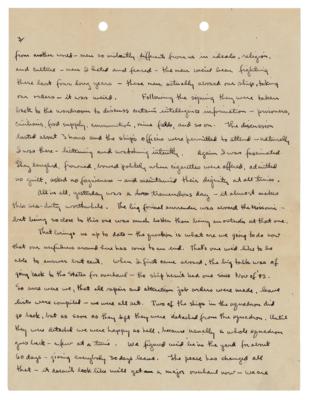 2
from another world - men so violently different from us in ideals, religion
and culture - men I hated and feared - the men we'd been fighting
these last four long years - these men actually aboard our ship, taking
our orders - it was weird. Following the signing they were taken
back to the wardroom to discuss certain intelligence information - prisoners,
civilians, food supply, communication, mine fields, and so on. The discussion
lasted about 3 hours and the ship's officers were permitted to attend - naturally
I was there - listening and watching intently. Again I was fascinated
They laughed, frowned, bowed politely when cigarettes were offered, admitted
no guilt, asked no forgiveness - and maintained their dignity at all times.
All in all, yesterday was a tremendous day - it almost makes
this sea-duty worthwhile. The big formal surrender was aboard the Missouri -
but being so close to this one was much better than being an outsider at that one.
That brings us up to date - the question is what are we going to do now
that our usefulness around here has come to an end. That's one we'd like to be
able to answer but can't. When I first came aboard, the big talk was of
going back to the States for overhaul - the ship hasn't had one since Nov of '43.
So sure were we, that all repair and alteration job orders were made, leave
lists were compiled - we were all set. Two of the ships in the squadron did
go back, but as soon as they left they were detached from the squadron. Until
they were detached we were happy as hell, because usually a whole squadron
goes back - a few at a time. We figured we'd be in the yard for about
60 days - giving everybody 30 days leave. The peace has changed all
that - it doesn't look like we'll get a major overhaul now - we are